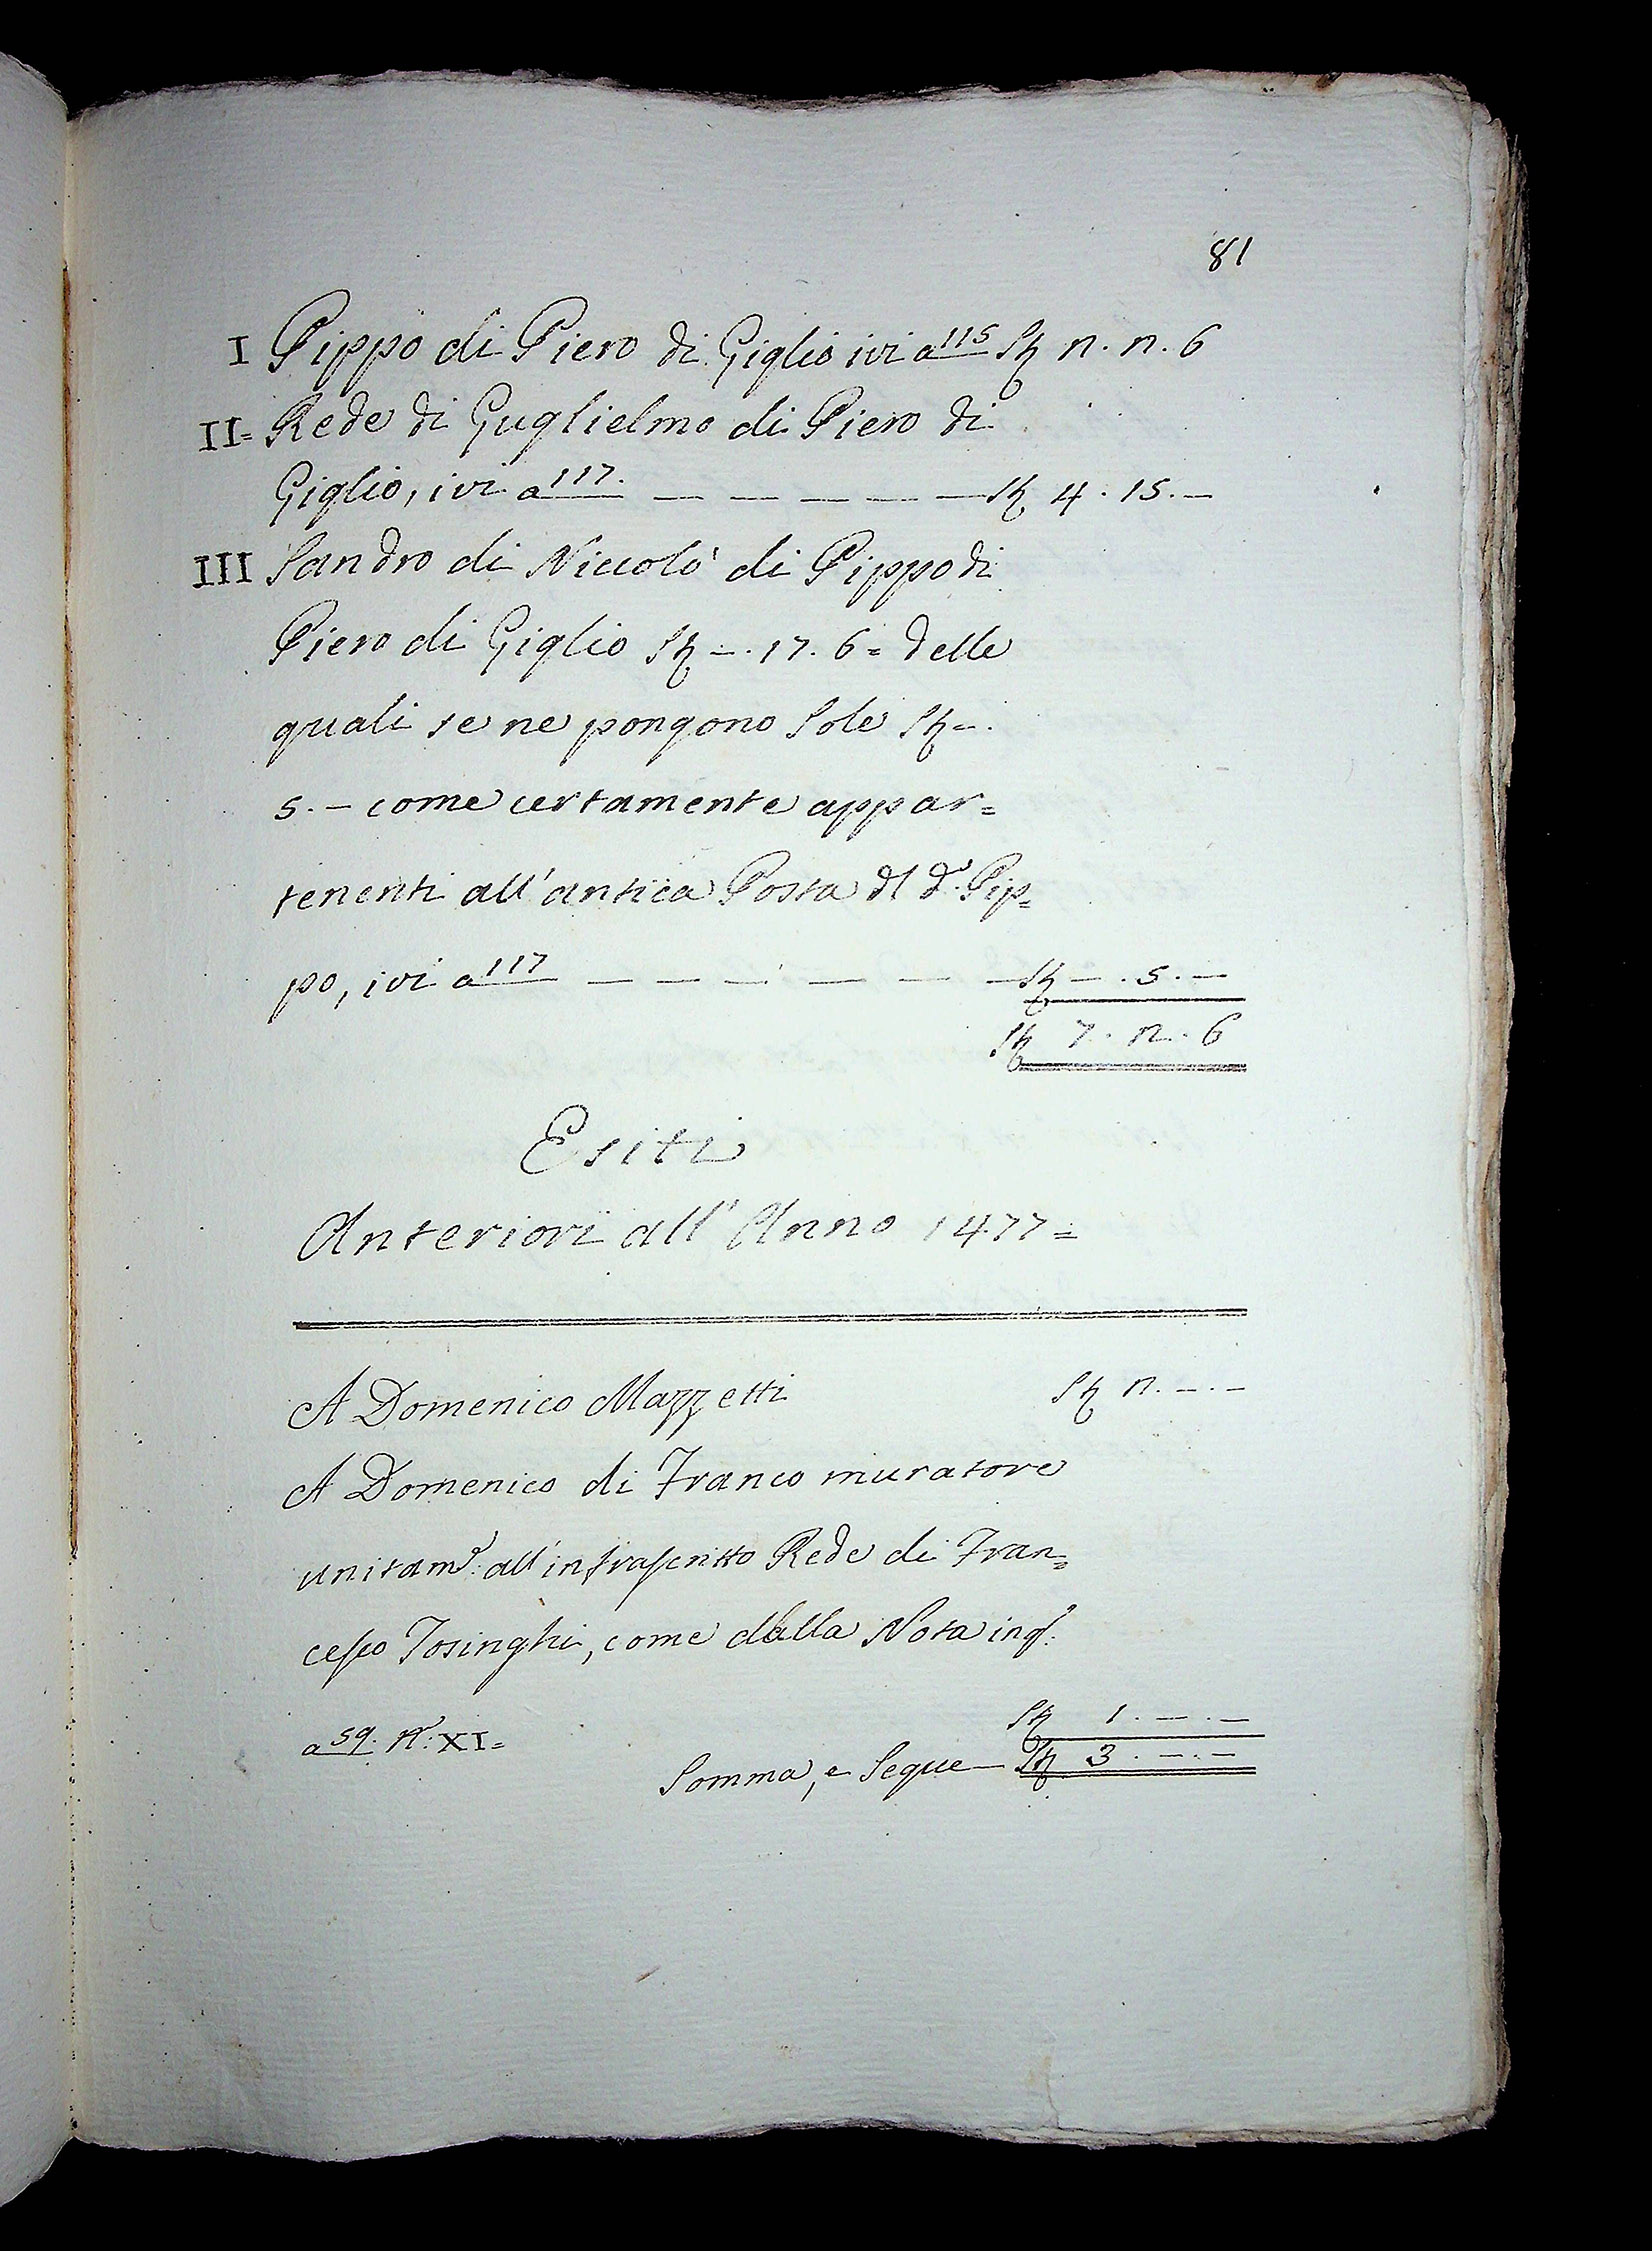 81
I Pippo di Piero di Giglio ivi a 115 St 2. 12. 6
II= Rede di Guglielmo di Piero di
Giglio, ivi a 117. — — — — — St 4. 15. —
III Sandro di Niccolò di Pippo di
Piero di Giglio St —. 17. 6= delle
quali se ne pongono sole St —.
5. — come certamente appar=
tenenti all'antica Posta dl d.o Pip=
po, ivi a 117 — — — — — — St —. 5. —
St 7. 12. 6
Esiti
Anteriori all'Anno 1477=
A Domenico Mazzetti St 2. —. —
A Domenico di Franco muratore
unitam.e all'infrascritto Rede di Fran=
cesco Tosinghi, come dalla Nota in q.o
a 59. N.o XI= St 1. —. —
Somma, e Segue — St 3. —. —